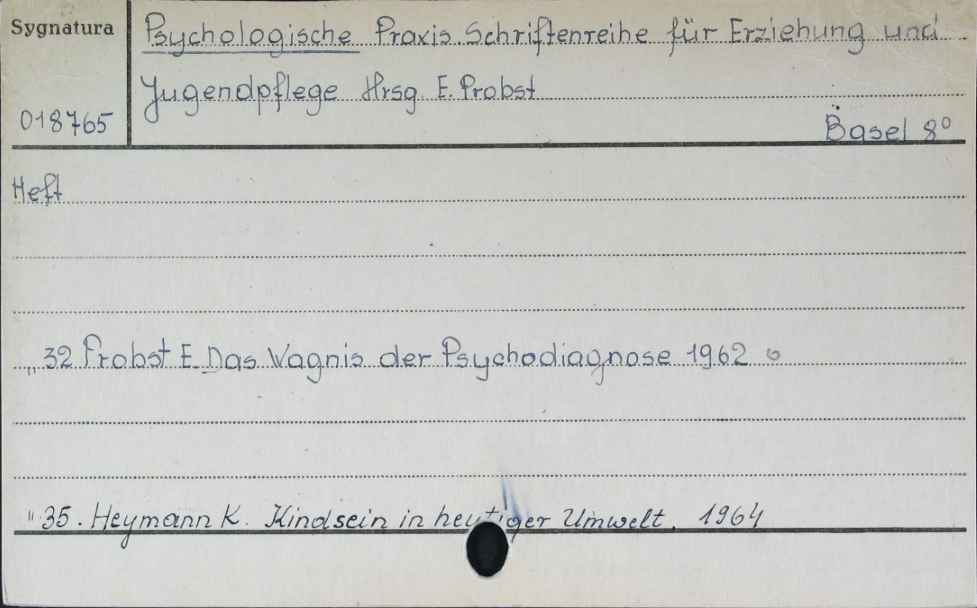 Sygnatura
018765
Psychologische Praxis. Schriftenreihe für Erziehung und
Jugendpflege Hrsg. E. Probst
Basel 8°
Heft
„ 32 Probst E. Das Wagnis der Psychodiagnose 1962
" 35. Heymann K. Kindsein in heutiger Umwelt. 1964